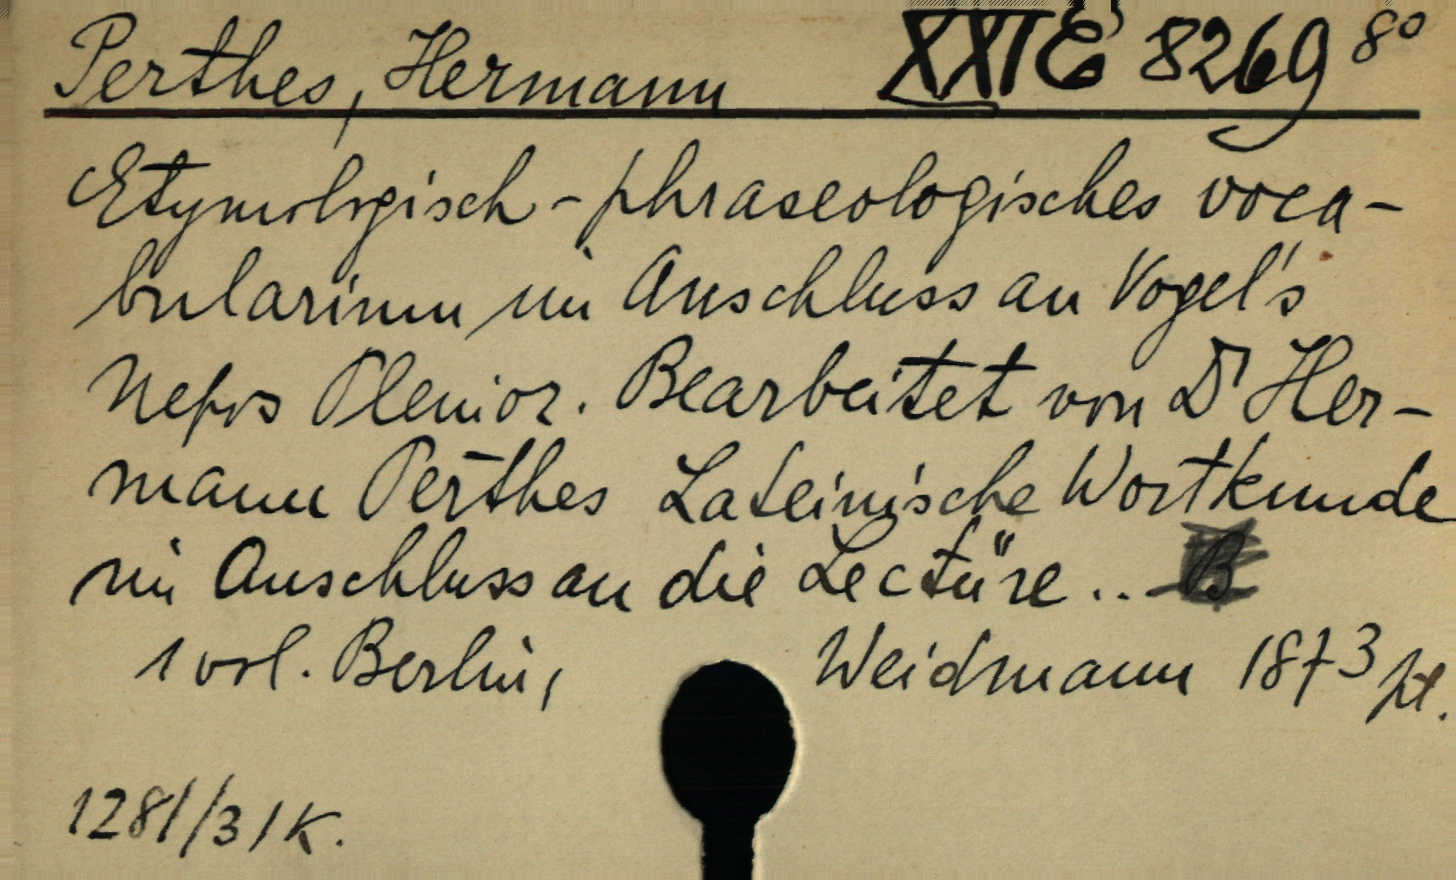 Perthes, Hermann XXI E 8269 8°
Etymologisch-phraseologisches voca-
bularium im Anschluss an Vogel's
Nepos Plenior. Bearbeitet von Dr Her-
mann Perthes Lateinische Wortkunde
im Anschluss an die Lectüre..
1 vol. Berlin, Weidmann 1873
1281/31K.